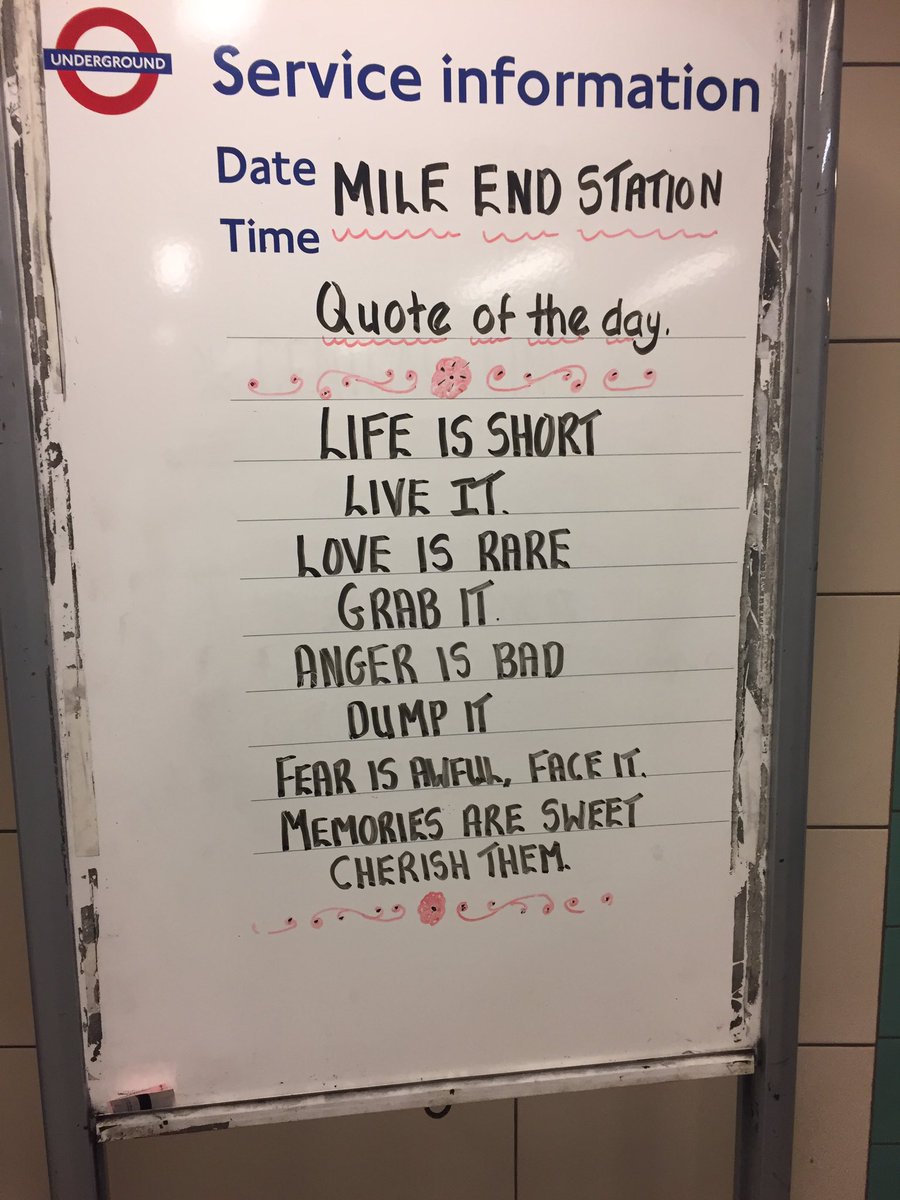 UNDERGROUND
Service information
Date MILE END STATION
Time
Quote of the day.
LIFE IS SHORT
LIVE IT.
LOVE IS RARE
GRAB IT.
ANGER IS BAD
DUMP IT
FEAR IS AWFUL, FACE IT.
MEMORIES ARE SWEET
CHERISH THEM.